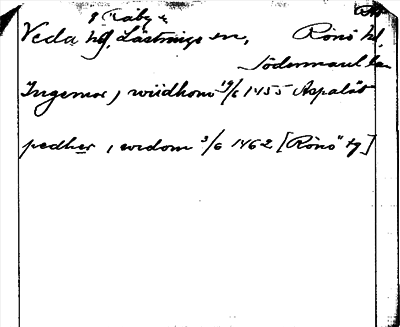 Täby
Veda hg, Lästrings sn, Rönö hd,
Södermanl. län
Ingemar, wiidhom 19/6 1455 Aspalöt
pedher, widom 3/6 1462 [Rönö tg]